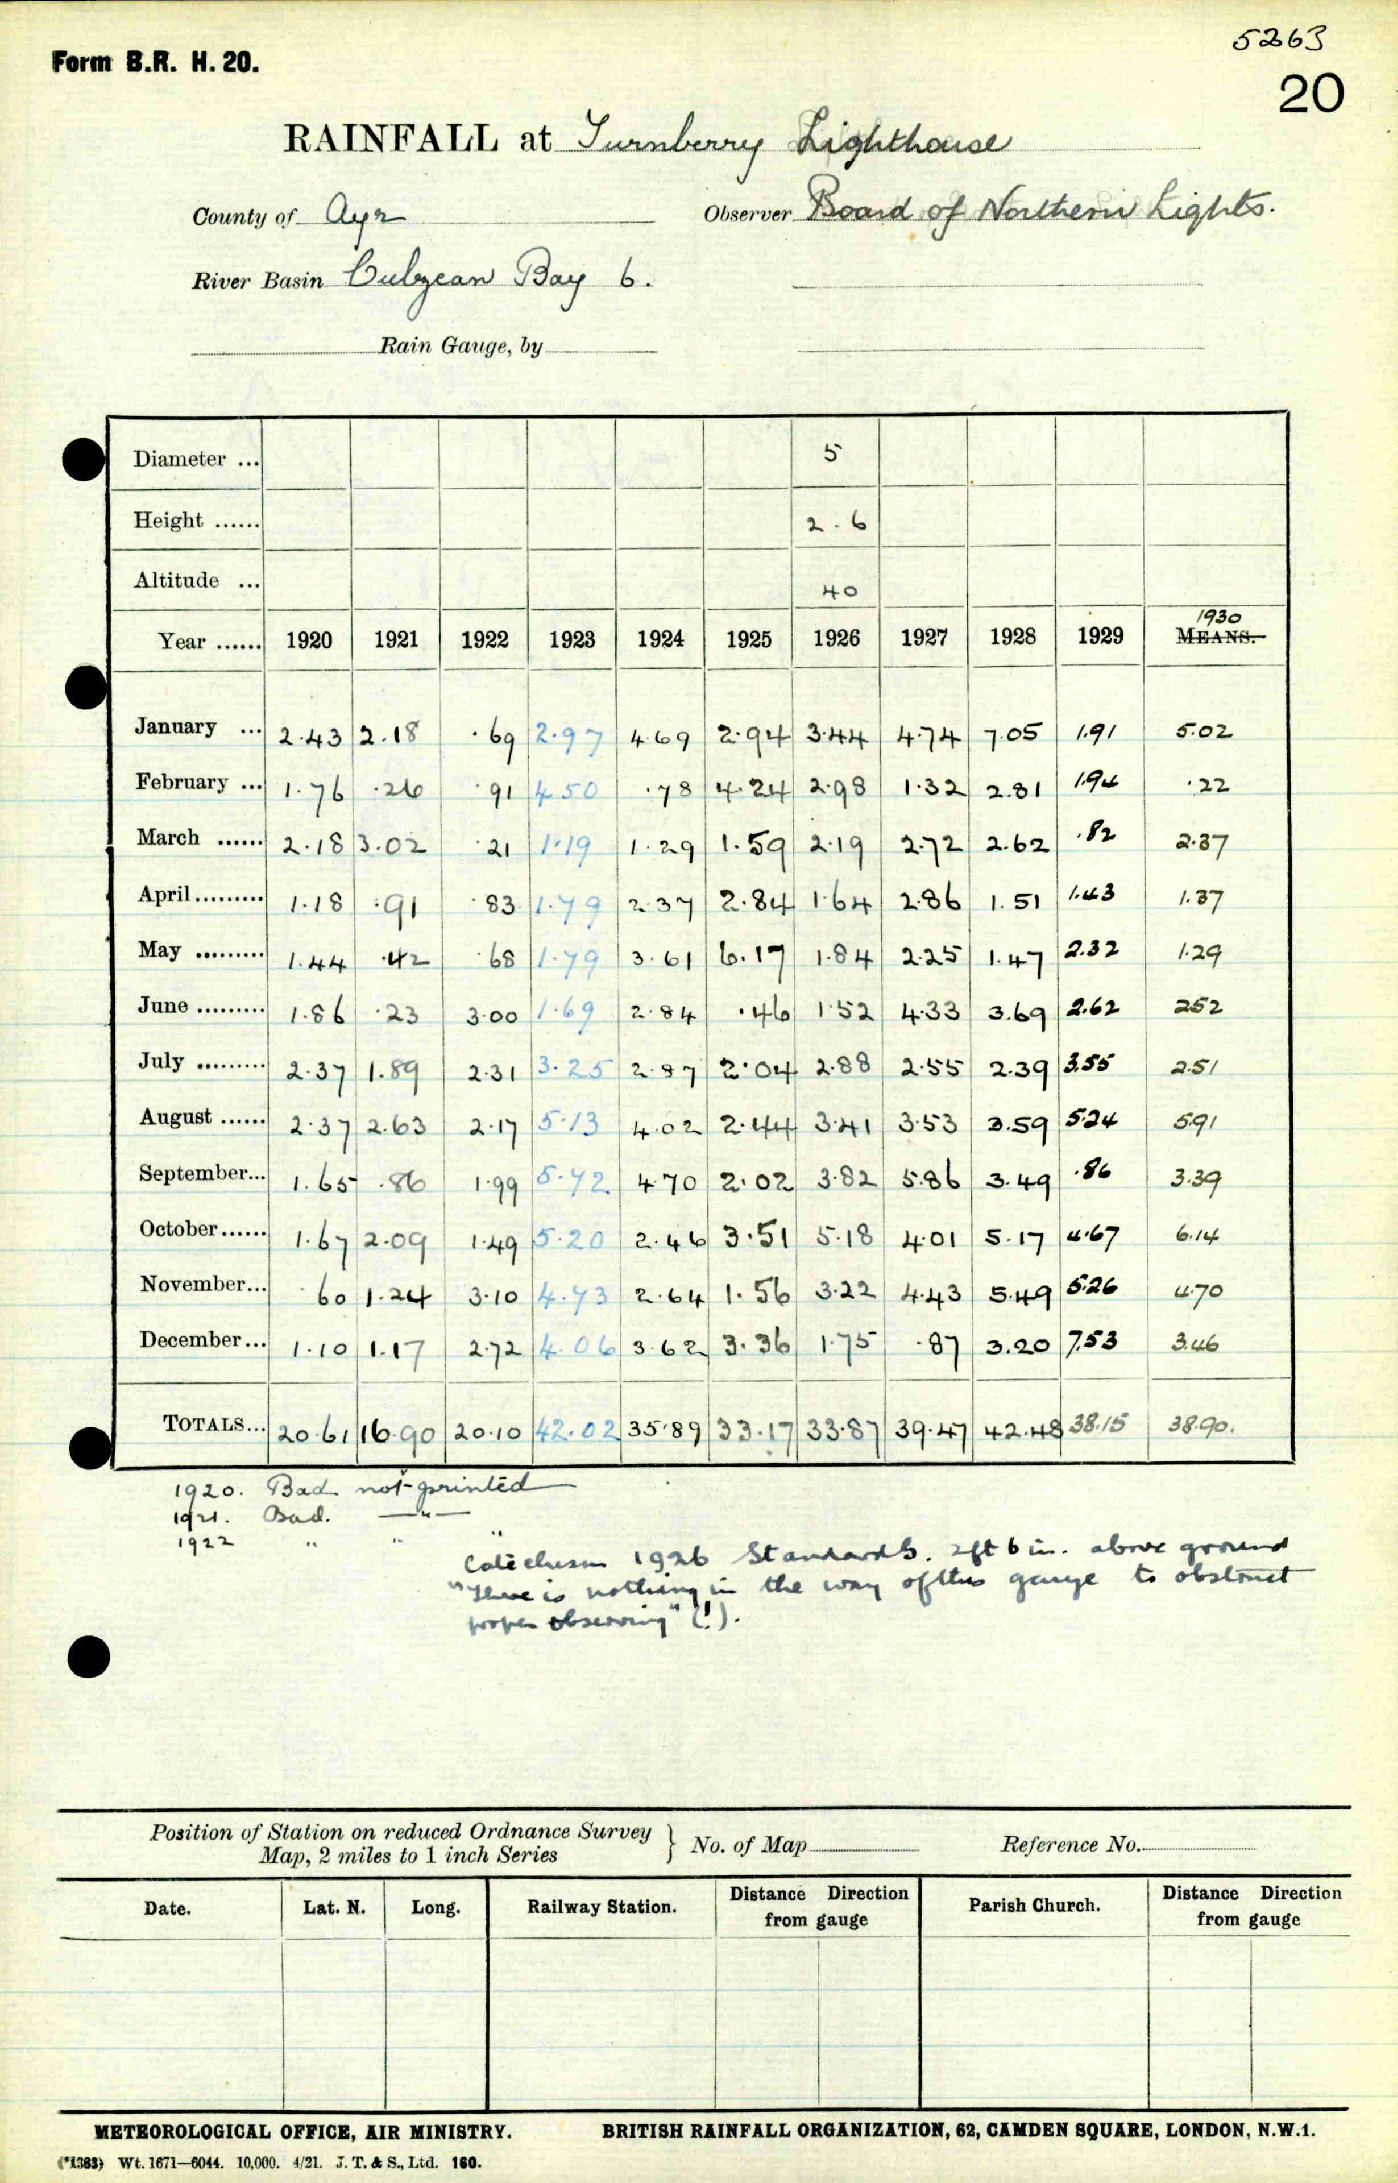 5263
Form B.R. H. 20.
20
RAINFALL at Turnberry Lighthouse
County of Ayr Observer Board of Northern Lights.
River Basin Culzean Bay 6.
Rain Gauge, by
Diameter ... 5
Height ...... 2.6
Altitude ... 40
Year ...... 1920 1921 1922 1923 1924 1925 1926 1927 1928 1929 1930 MEANS.
January ... 2.43 2.18 .69 2.97 4.69 2.94 3.44 4.74 7.05 1.91 5.02
February ... 1.76 .26 .91 4.50 .78 4.24 2.98 1.32 2.81 1.94 .22
March ...... 2.18 3.02 .21 1.19 1.29 1.59 2.19 2.72 2.62 .82 2.37
April......... 1.18 .91 .83 1.79 2.37 2.84 1.64 2.86 1.51 1.43 1.37
May ......... 1.44 .42 .68 1.79 3.61 6.17 1.84 2.25 1.47 2.32 1.29
June ......... 1.86 .23 3.00 1.69 2.84 .46 1.52 4.33 3.69 2.62 2.52
July ......... 2.37 1.89 2.31 3.25 2.87 2.04 2.88 2.55 2.39 3.55 2.51
August ...... 2.37 2.63 2.17 5.13 4.02 2.44 3.41 3.53 3.59 5.24 5.91
September... 1.65 .86 1.99 5.72 4.70 2.02 3.82 5.86 3.49 .86 3.39
October...... 1.67 2.09 1.49 5.20 2.46 3.51 5.18 4.01 5.17 4.67 6.14
November... .60 1.24 3.10 4.73 2.64 1.56 3.22 4.43 5.49 5.26 4.70
December... 1.10 1.17 2.72 4.06 3.62 3.36 1.75 .87 3.20 7.53 3.46
TOTALS... 20.61 16.90 20.10 42.02 35.89 33.17 33.87 39.47 42.48 38.15 38.90.
1920. Bad not printed
1921. Bad. — " —
1922 " "
Catechism 1926 Standard 5. 2ft 6 in. above ground
"There is nothing in the way of this gauge to obstruct
proper observing" (!).
Position of Station on reduced Ordnance Survey
Map, 2 miles to 1 inch Series } No. of Map Reference No.
Date. Lat. N. Long. Railway Station. Distance Direction from gauge Parish Church. Distance Direction from gauge
METEOROLOGICAL OFFICE, AIR MINISTRY. BRITISH RAINFALL ORGANIZATION, 62, CAMDEN SQUARE, LONDON, N.W.1.
(*1383) Wt. 1671—6044. 10,000. 4/21. J. T. & S., Ltd. 160.